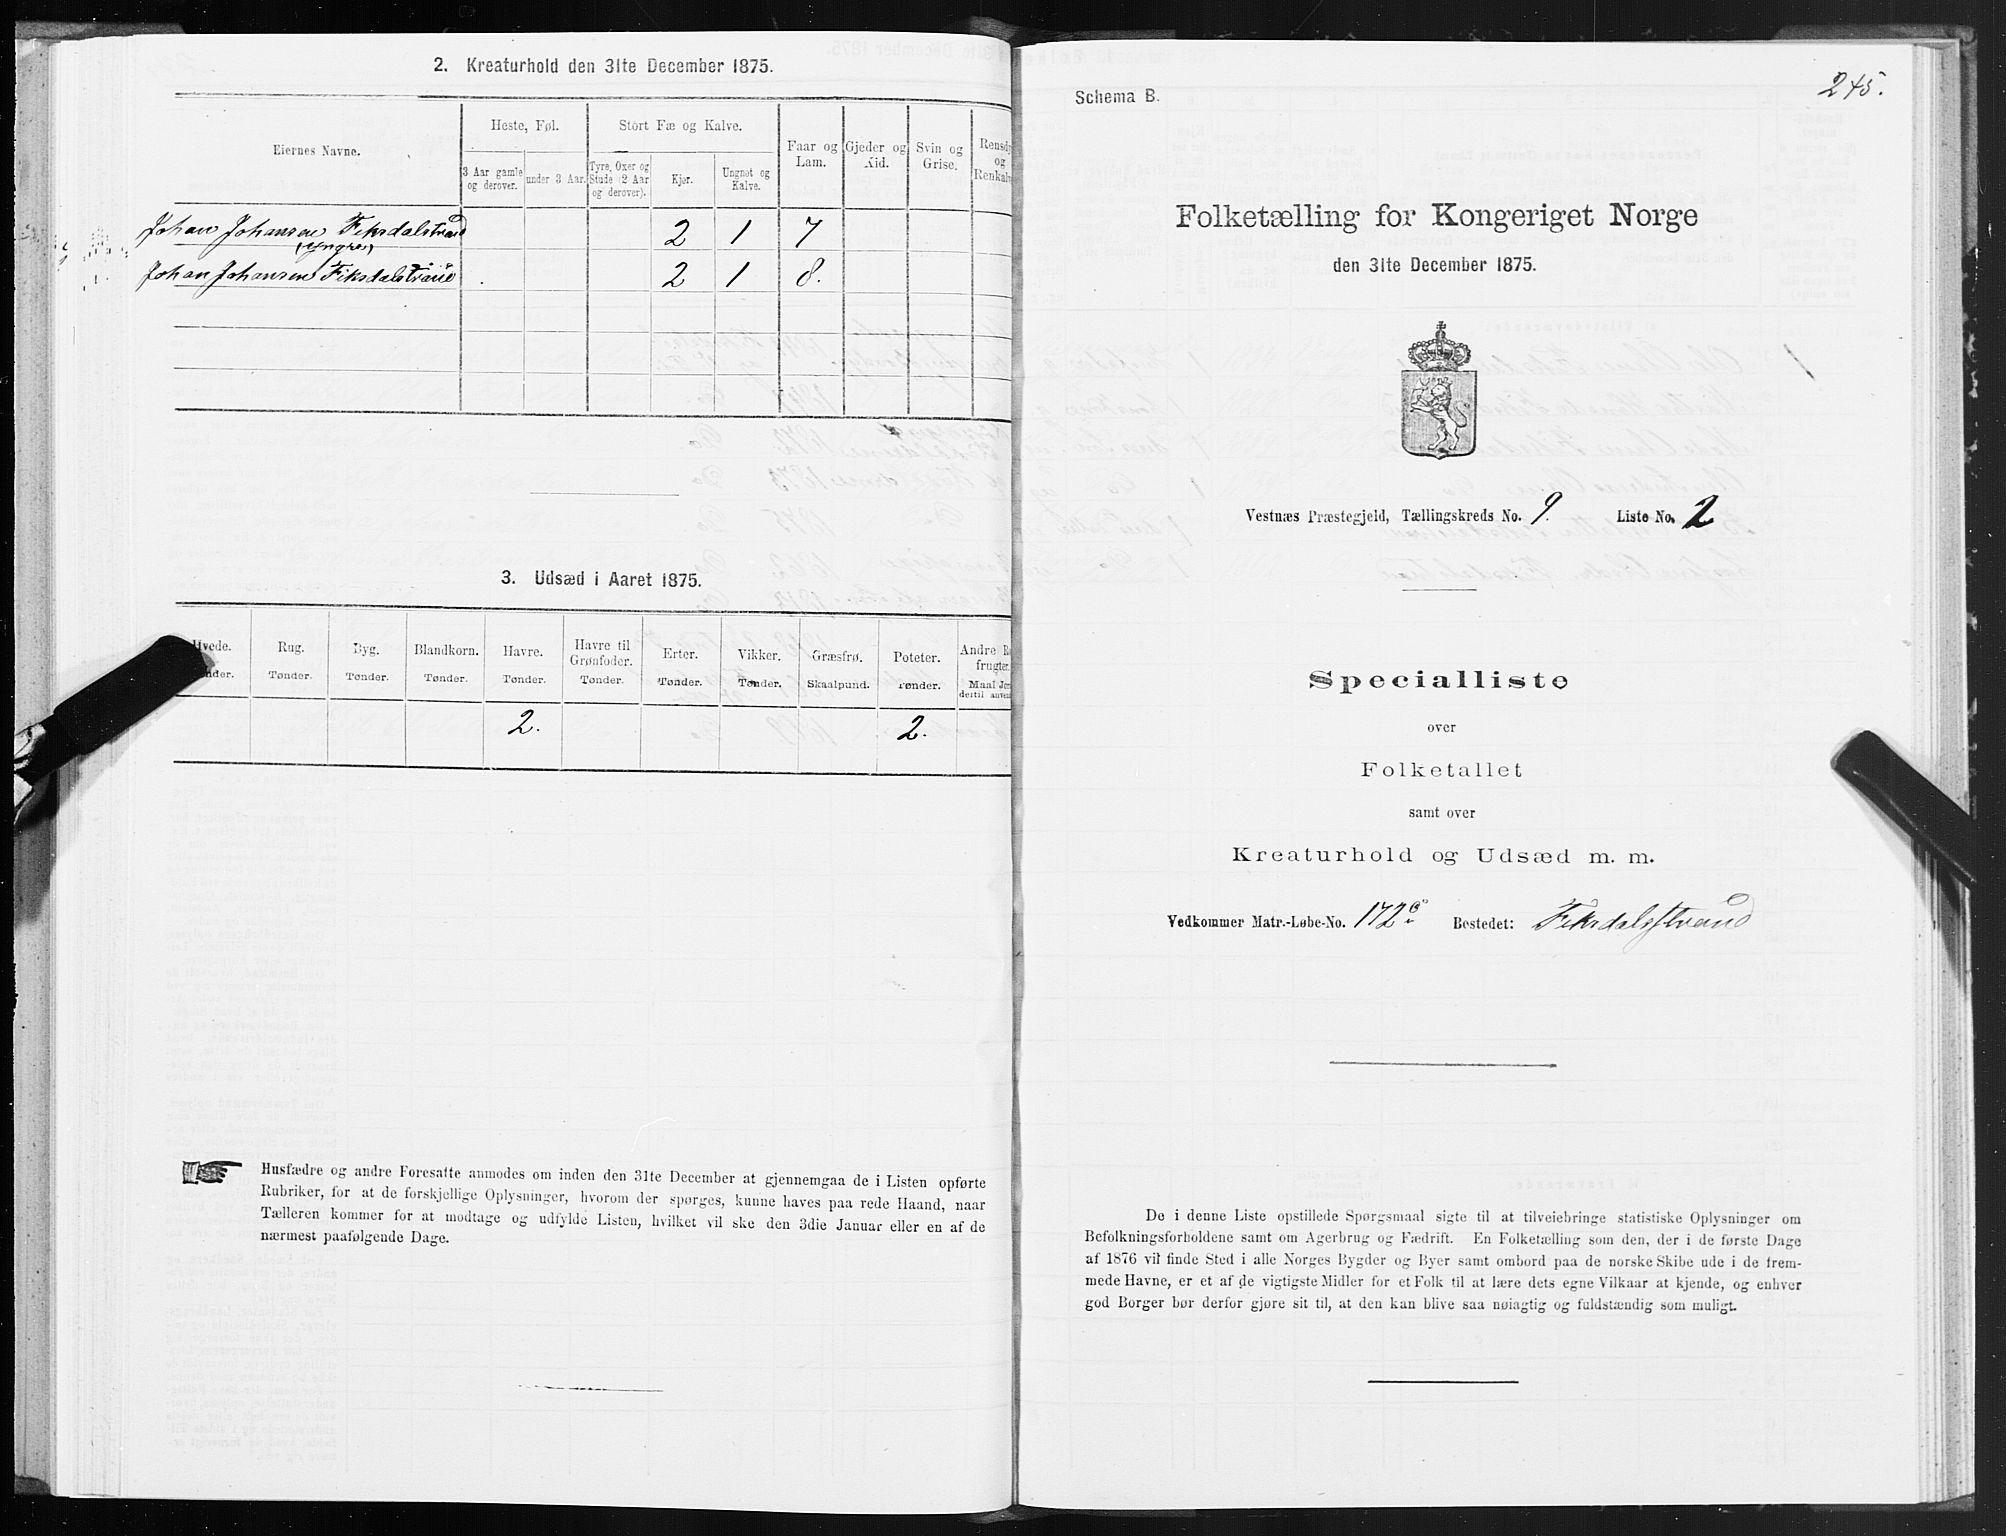 2. Kreaturhold den 31te December 1875.
Eiernes Navne.
Heste, Føl.
Stort Fæ og Kalve.
Faar og Lam.
Gjeder og Kid.
Svin og Grise.
og
3 Aar gamle og derover.
under 3 Aar.
Tyre, Oxer og Stude (2 Aar og derover).
Kjør.
Ungnøt og Kalve.
Johan Johansen Fiksdalstrand 2 1 7
(yngre)
Johan Johansen Fiksdalstrand 2 1 8.
3. Udsæd i Aaret 1875.
Hvede. Rug. Byg. Blandkorn. Havre. Havre til Grønfoder. Erter. Vikker. Græsfrø. Poteter. Andre
frugter.
Tønder. Tønder. Tønder. Tønder. Tønder. Tønder. Tønder. Tønder. Skaalpund. Tønder. Maal
dertil
2. 2.
Husfædre og andre Foresatte anmodes om inden den 31te December at gjennemgaa de i Listen opførte
Rubriker, for at de forskjellige Oplysninger, hvorom der spørges, kunne haves paa rede Haand, naar
Tælleren kommer for at modtage og udfylde Listen, hvilket vil ske den 3die Januar eller en af de
nærmest paafølgende Dage.
245.
Schema B.
Folketælling for Kongeriget Norge
den 31te December 1875.
Vestnæs Præstegjeld, Tællingskreds No. 9. Liste No. 2
Specialliste
over
Folketallet
samt over
Kreaturhold og Udsæd m. m.
Vedkommer Matr.-Løbe-No. 172 Bostedet: Fiksdalsstrand
De i denne Liste opstillede Spørgsmaal sigte til at tilveiebringe statistiske Oplysninger om
Befolkningsforholdene samt om Agerbrug og Fædrift. En Folketælling som den, der i de første Dage
af 1876 vil finde Sted i alle Norges Bygder og Byer samt ombord paa de norske Skibe ude i de frem-
mede Havne, er et af de vigtigste Midler for et Folk til at lære dets egne Vilkaar at kjende, og enhver
god Borger bør derfor gjøre sit til, at den kan blive saa nøiagtig og fuldstændig som muligt.